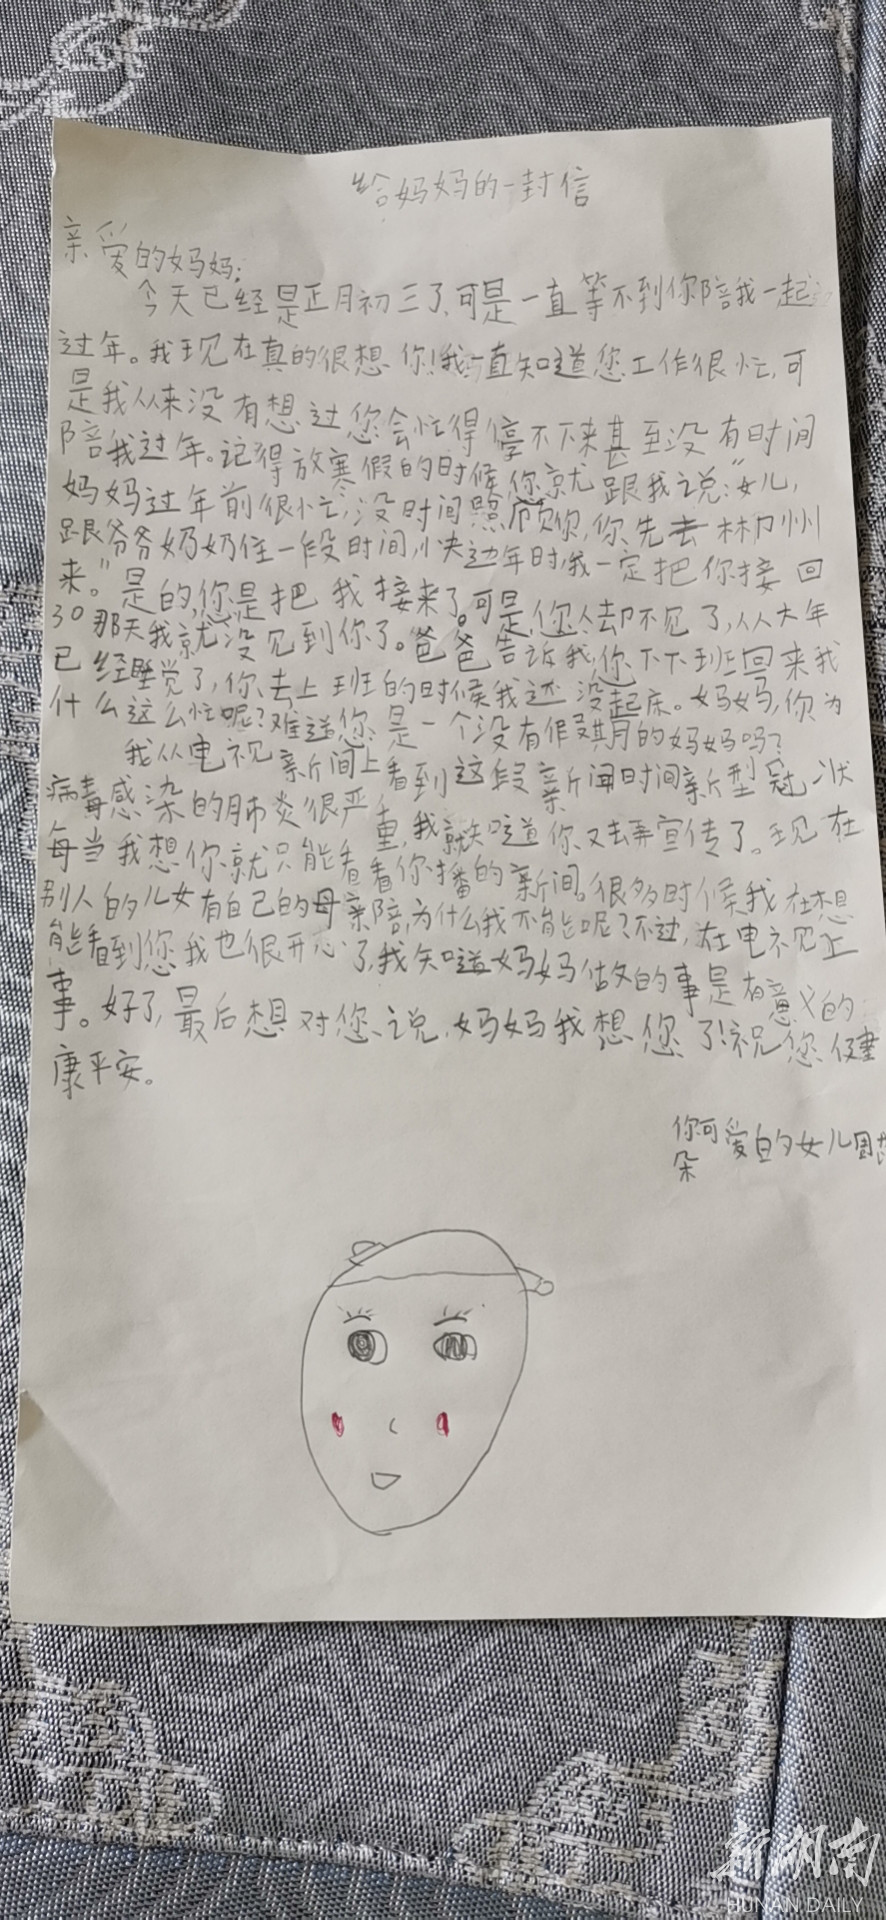 给妈妈的一封信
亲爱的妈妈:
今天已经是正月初三了,可是一直等不到你陪我一起
过年。我现在真的很想你!我一直知道您工作很忙,可
是我从来没有想过您会忙得停不下来甚至没有时间
陪我过年。记得放寒假的时候,你就跟我说:“女儿,
妈妈过年前很忙,没时间照顾你,你先去郴州
跟爷爷奶奶住一段时间,快过年时,我一定把你接回
来。”是的,您是把我接来了。可是,您人却不见了,从大年
30那天我就没见到你了。爸爸告诉我,您下下班回来我
已经睡觉了,你去上班的时候我还没起床。妈妈,你为
什么这么忙呢?难道您是一个没有假期的妈妈吗?
我从电视新闻上看到这段新闻时间新型冠状
病毒感染的肺炎很严重,我就知道你又去弄宣传了。现在
每当我想你就只能看看你播的新闻。很多时候我在想
别人的儿女有自己的母亲陪,为什么我不能呢?不过,在电视上
能看到您我也很开心了,我知道妈妈做的事是有意义的
事。好了,最后想对您说,妈妈我想您了!祝您健
康平安。
你可爱的女儿周
朵
新湖南
HUNAN DAILY